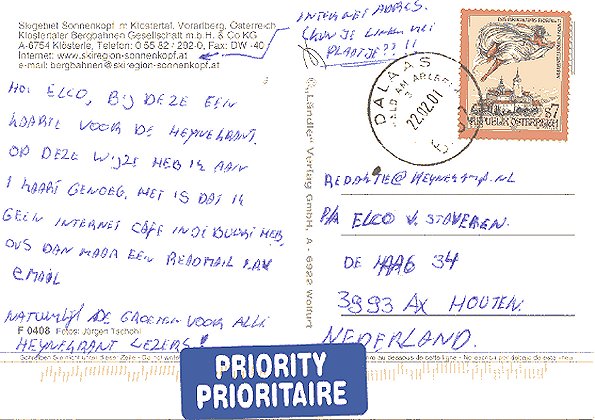 Skigebiet Sonnenkopf im Klostertal, Vorarlberg, Österreich
Klostertaler Bergbahnen Gesellschaft m.b.H. & Co KG
A-6754 Klösterle, Telefon: 0 55 82 / 292-0, Fax: DW -40
Internet: www.skiregion-sonnenkopf.at
e-mail: bergbahnen@skiregion-sonnenkopf.at
INTERNET ADRES.
KUN JE LINKEN MEI
PLAATJE??!!
HOI ELCO, BIJ DEZE EEN
KAARTJE VOOR DE HEYNEKRANT.
OP DEZE WIJZE HEB IK AAN
1 KAART GENOEG. HET IS DAT IK
GEEN INTERNET CAFE IN DE BUURT HEB,
DUS DAN MAAR EEN READMAIL I.P.V.
EMAIL
NATUURLIJK DE GROETEN VOOR ALLE
HEYNEKRANT LEZERS!
F 0408 Fotos: Jürgen Tschohl
© „Länder" Verlag GmbH, A - 6922 Wolfurt
DALAAS
WALD AM ARLBERG
22.02.01
S7
REPUBLIK ÖSTERREICH
REDAKTIE@HEYNEKRANT.NL
P/A ELCO V. STAVEREN.
DE HAAG 34
3993 AX HOUTEN.
NEDERLAND.
PRIORITY
PRIORITAIRE